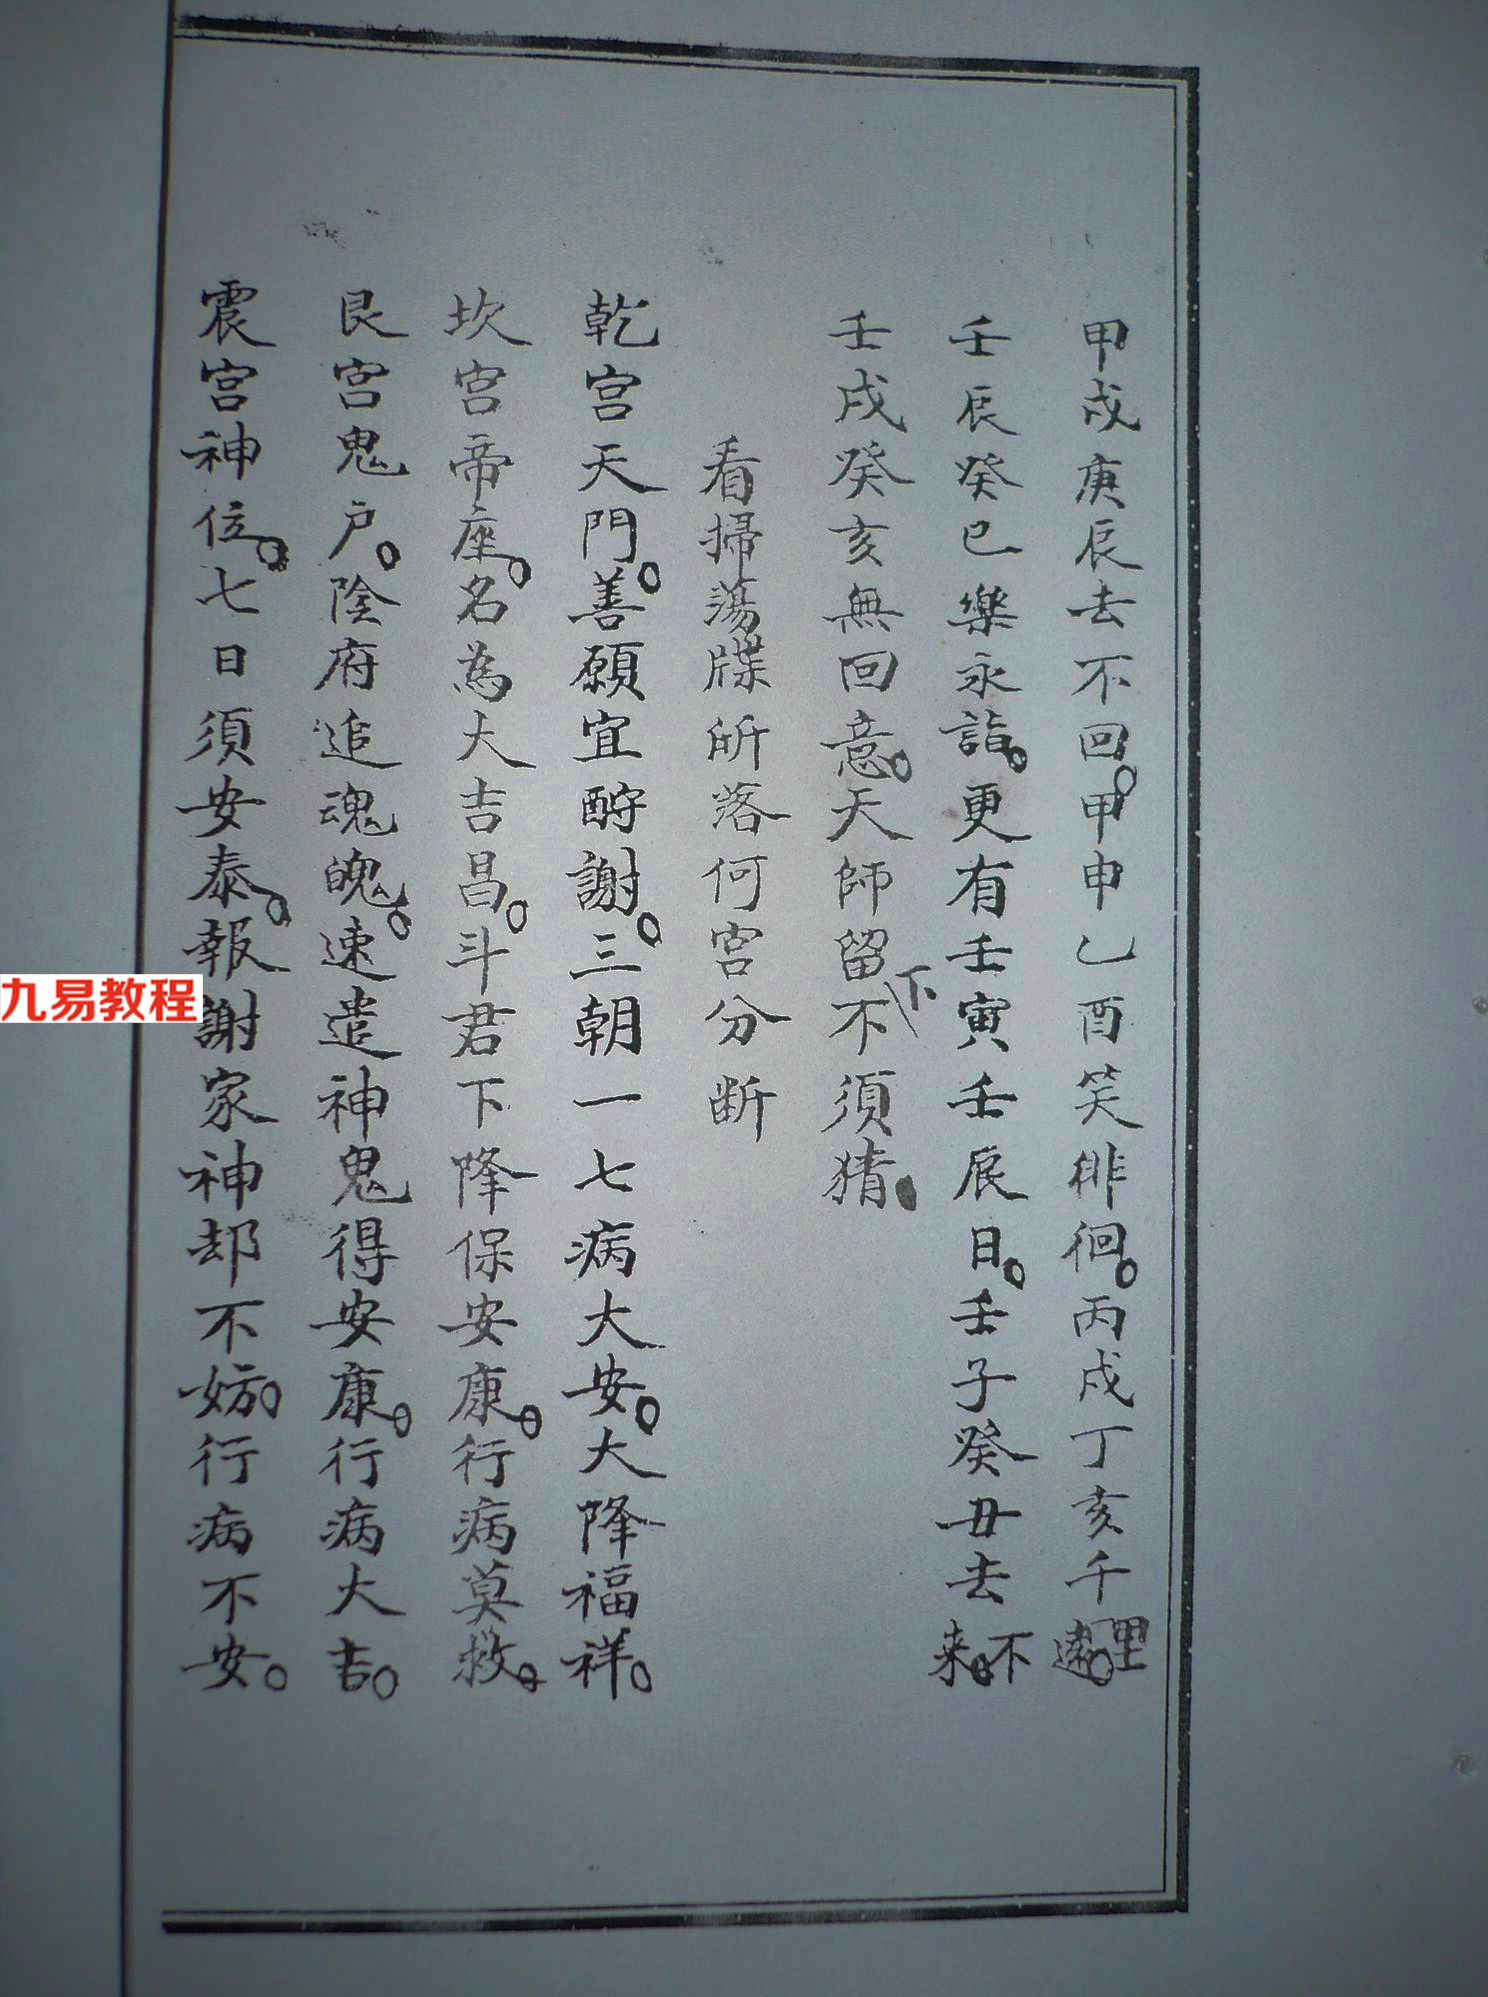 甲戌庚辰去不回。甲申乙酉笑徘徊。丙戌丁亥千里遠。
壬辰癸巳樂永詣。更有壬寅壬辰日。壬子癸丑去不来。
壬戌癸亥無回意。天師留下不須猜。
看掃蕩牒所落何宮分断
乾宮天門。善願宜酧謝。三朝一七病大安。大降福祥。
坎宮帝座。名為大吉昌。斗君下降保安康。行病莫救。
艮宮鬼户。陰府追魂魄。速遣神鬼得安康。行病大吉。
震宮神位。七日須安泰。報謝家神却不妨。行病不安。
九易教程